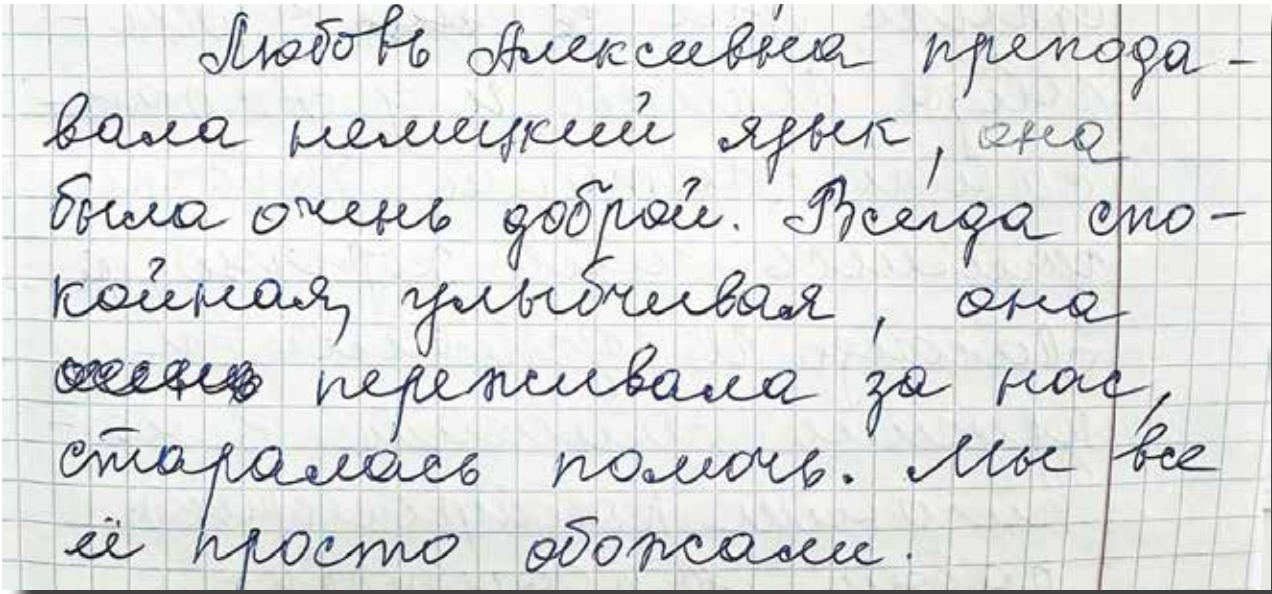 Любовь Алексеевна препода-
вала немецкий язык, она
была очень доброй. Всегда спо-
койная, улыбчивая, она
переживала за нас,
старалась помочь. Мы все
её просто обожали.